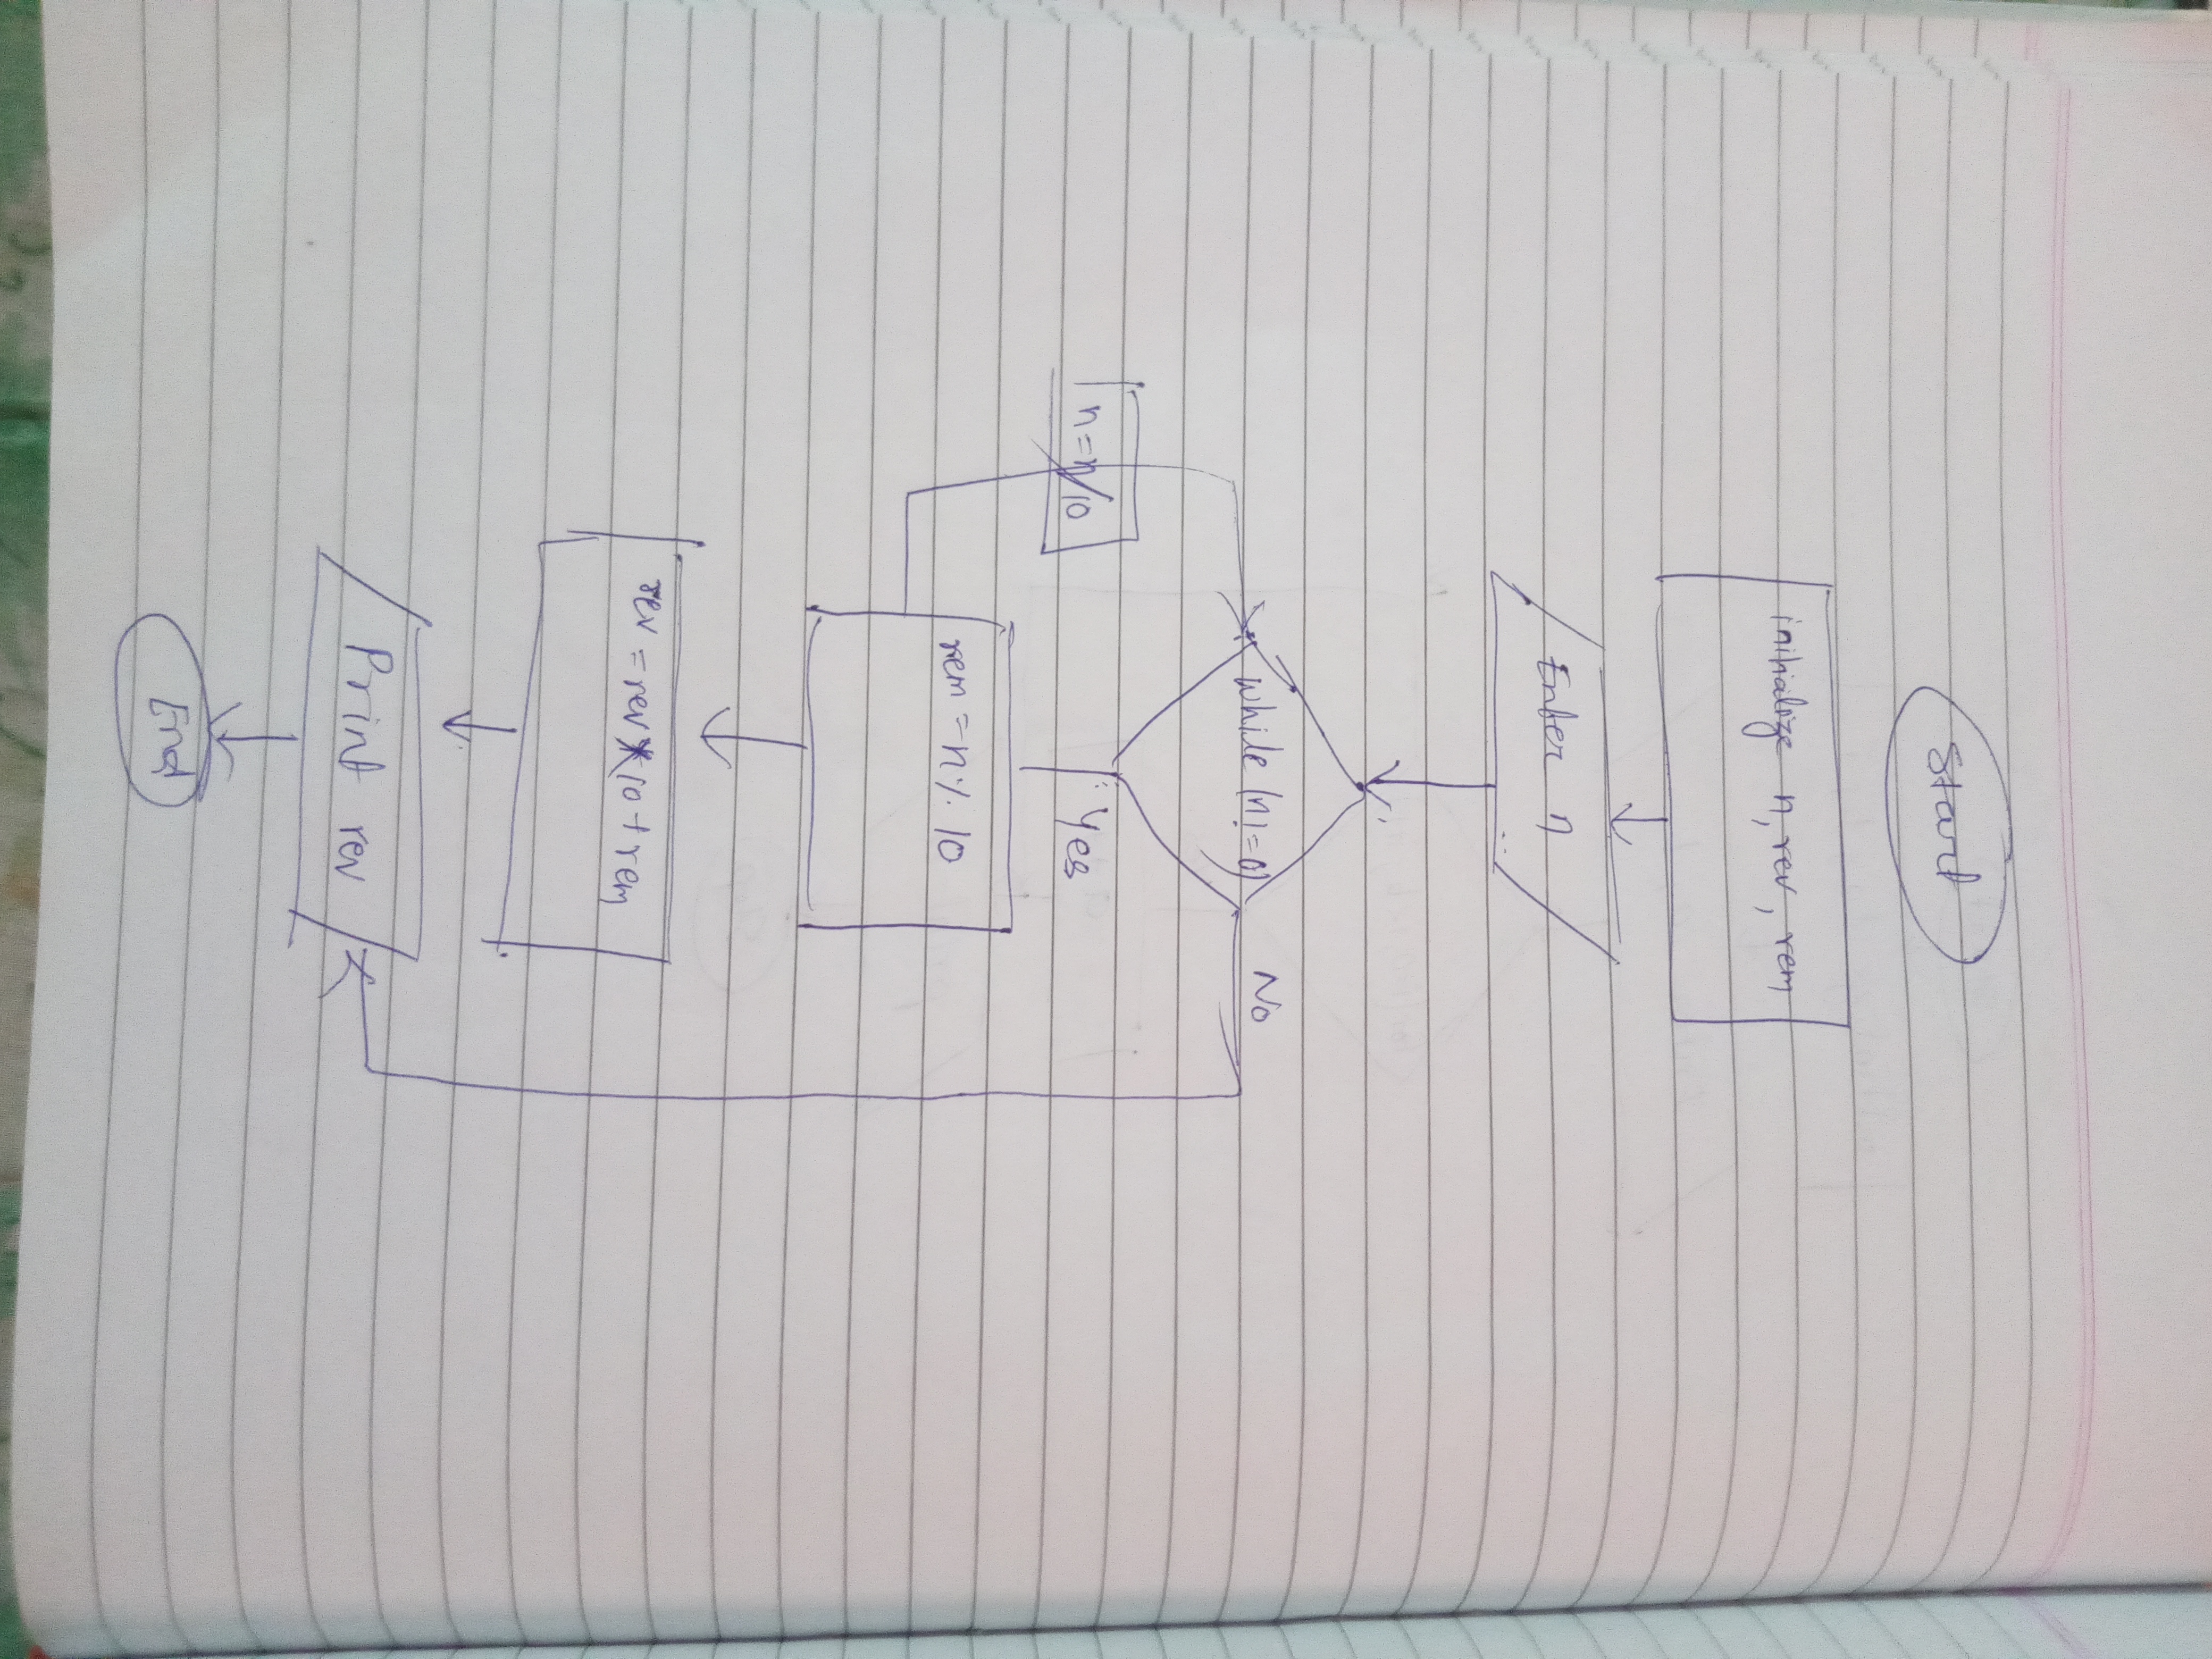 Start
initialize n, rev, rem
Enter n
while (n!=0)
No
Yes
n=n/10
rem = n % 10
rev = rev * 10 + rem
Print rev
End